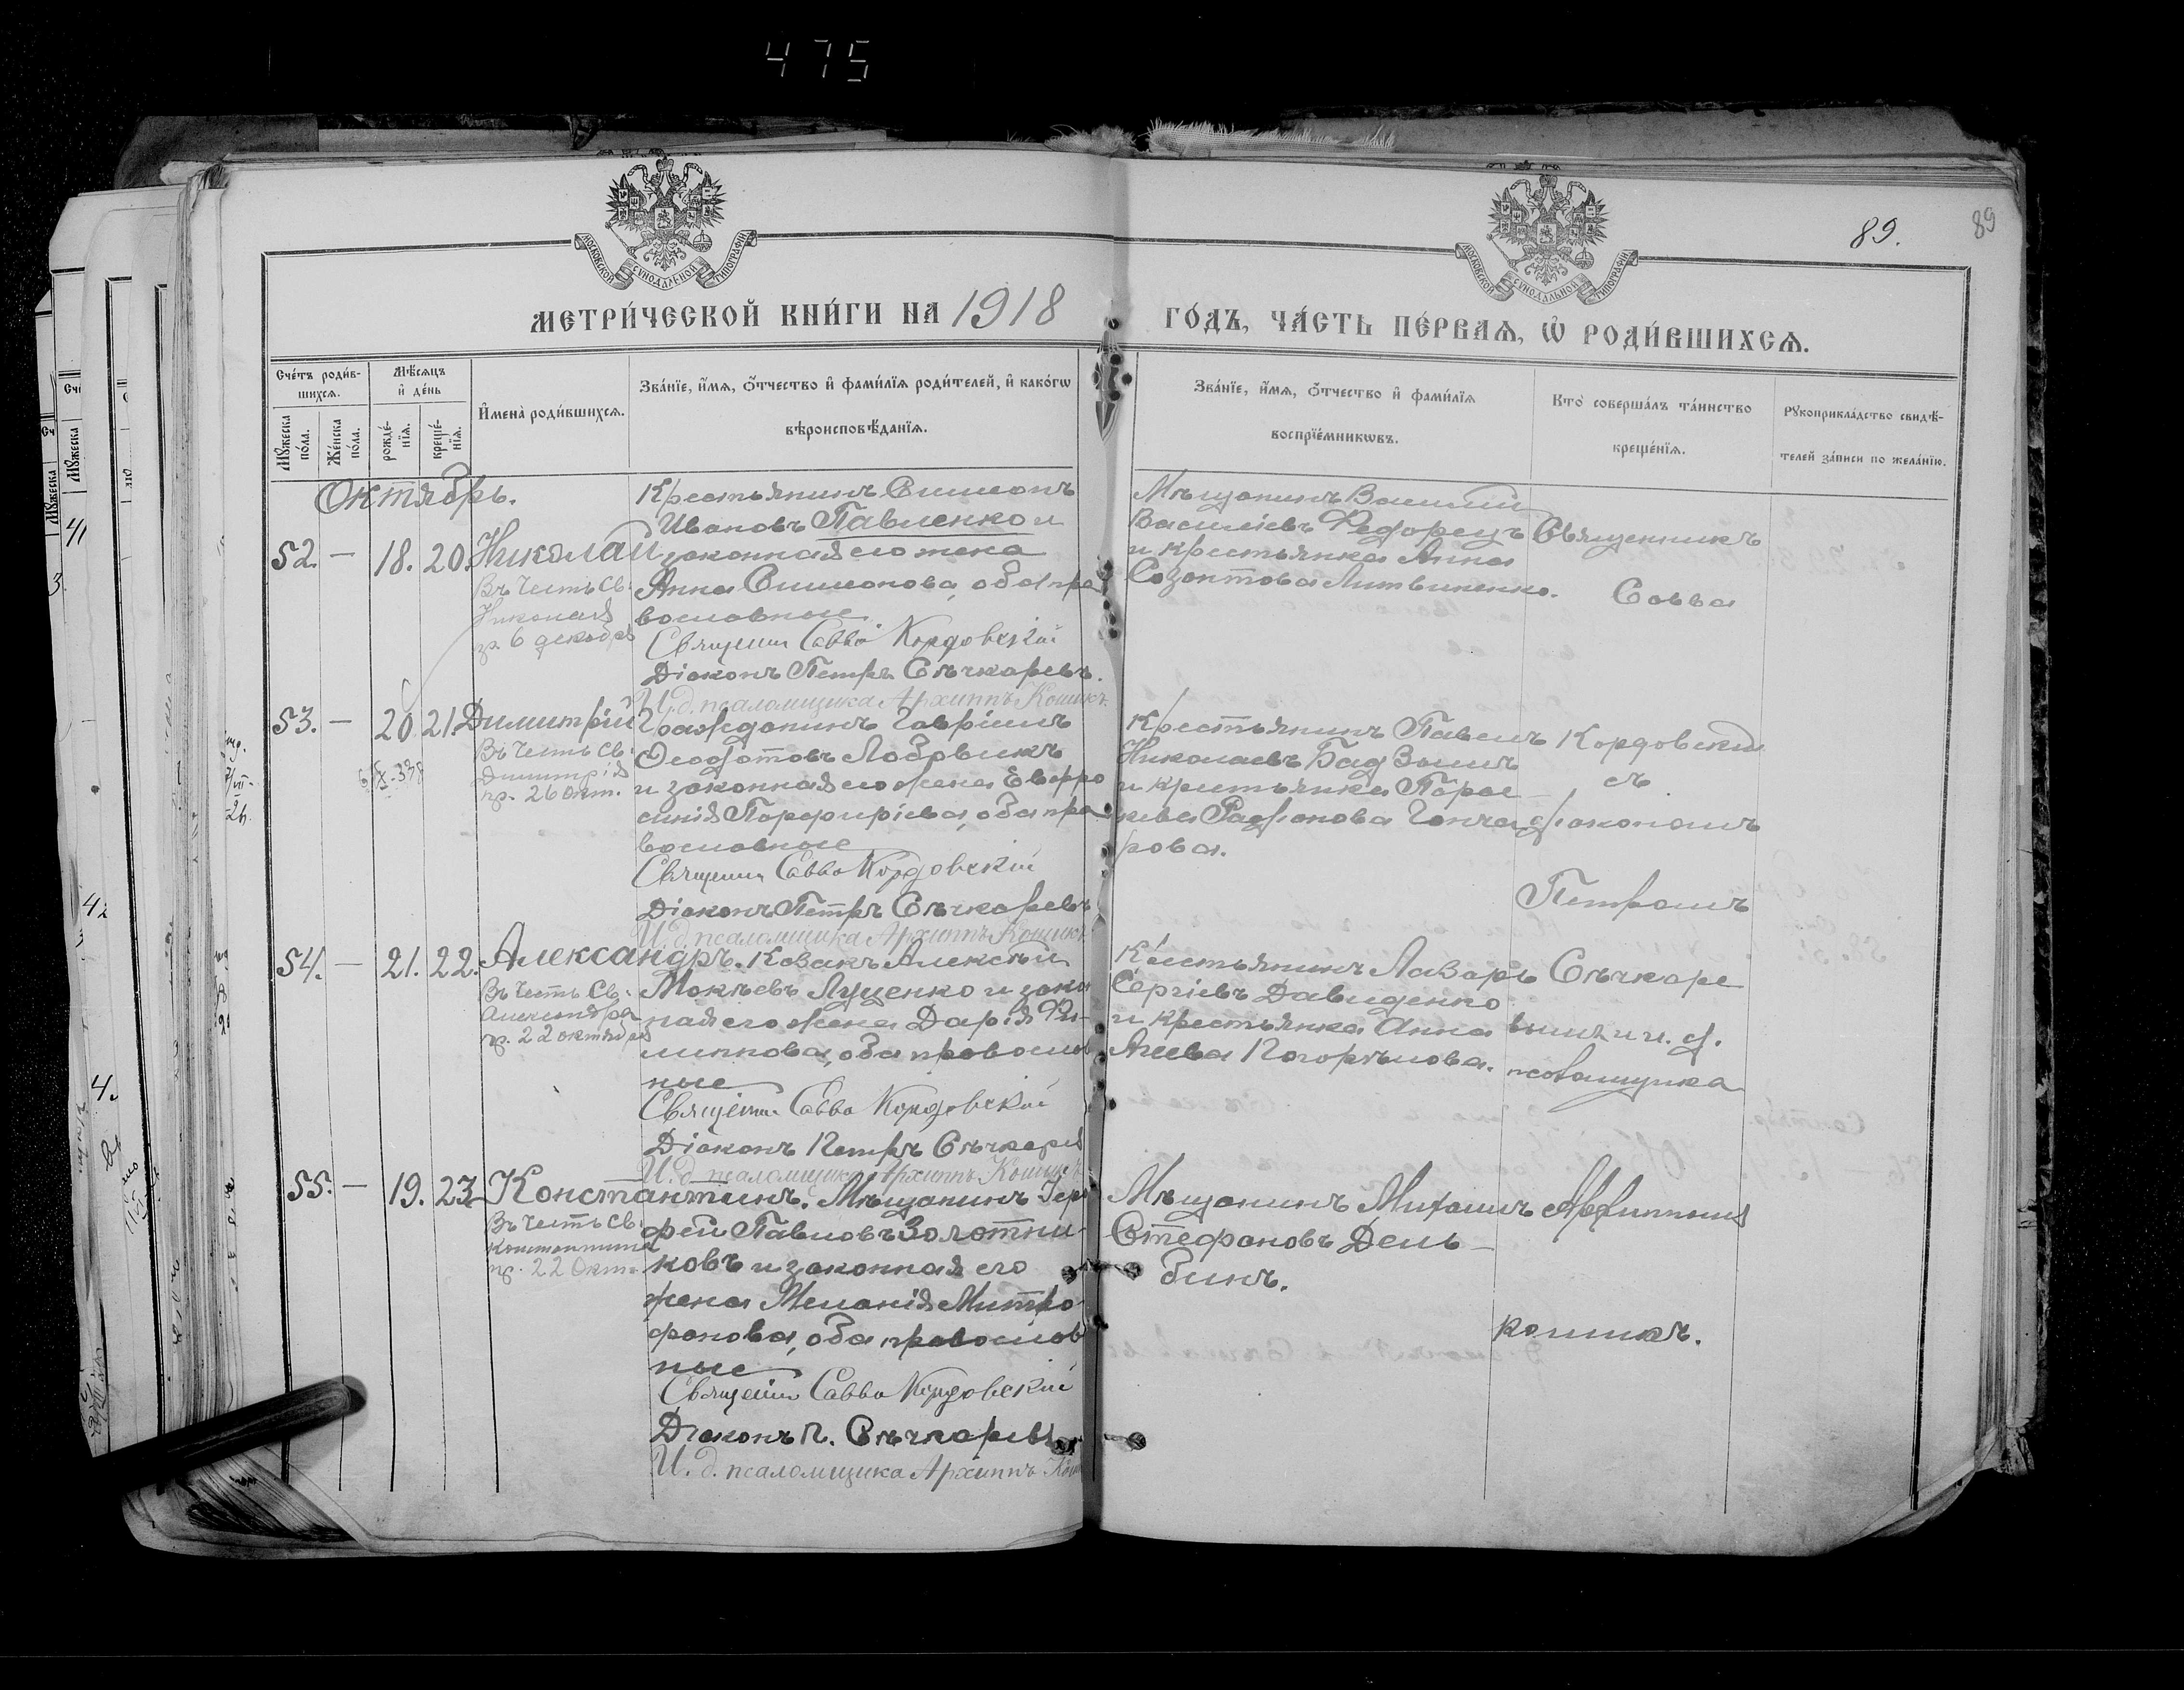 475
89.
89
МОСКОВСКОЙ СѴНОДАЛЬНОЙ ТИПОГРАФІИ
МОСКОВСКОЙ СѴНОДАЛЬНОЙ ТИПОГРАФІИ
МЕТРИ́ЧЕСКОЙ КНИ́ГИ НА 1918
ГО́ДЪ, ЧА́СТЬ ПЕ́РВАѦ, Ѡ҆ РОДИ́ВШИХСѦ.
Сче́тъ роди́в-
шихсѧ.
Мꙋ́жеска по́ла.
Же́нска по́ла.
Мѣ́сѧцъ
и҆ де́нь
рожде́-
нїѧ.
креще́-
нїѧ.
И҆мена̀ роди́вшихсѧ.
Зва́нїе, и҆́мѧ, ѻ҆́тчество и҆ фами́лїѧ роди́телей, и҆ како́гѡ
вѣроисповѣ́данїѧ.
Зва́нїе, и҆́мѧ, ѻ҆́тчество и҆ фами́лїѧ
воспрїе́мникѡвъ.
Кто̀ соверша́лъ та́инство
креще́нїѧ.
Рꙋкоприкла́дство свидѣ́-
телей за́писи по жела́нїю.
Октябрь.
52. — 18. 20. Николай
Въ честь Св.
Николая
пр. 6 декабря
Крестьянинъ Симеонъ
Ивановъ Павленко и
законная его жена
Анна Симеонова, оба пра
вославные
Священн. Савва Кордовскій
Діаконъ Петръ Сѣчкаревъ.
И. д. псаломщика Архиппъ Кошикъ
Мѣщанинъ Василій
Василіевъ Федорецъ
и крестьянка Анна
Созонтова Литвиненко.
Священникъ
Савва
53. — 20 21. Димитрій
Въ честь Св.
Димитрія
пр. 26 окт.
Гражданинъ Гавріилъ
Ѳеодотовъ Лобовикъ
и законная его жена Евфро
синія Порфиріева, оба пра
вославные
Священн. Савва Кордовскій
Діаконъ Петръ Сѣчкаревъ
И. д. псаломщика Архиппъ Кошикъ
Крестьянинъ Павелъ
Николаевъ
и крестьянка Парас
кева Гонча
рова.
Кордовскій
съ
діакономъ
Петромъ
54. — 21. 22. Александръ.
Въ честь Св.
Александра
пр. 22 октября
Козакъ Алексѣй
Мокѣевъ Луценко и закон
ная его жена Дарія Фи-
липпова, оба православ
ные
Священн. Савва Кордовскій
Діаконъ Петръ Сѣчкаревъ
И. д. псаломщика Архиппъ Кошикъ
Крестьянинъ Лазарь
Сергіевъ Давиденко
и крестьянка Анна
Агеева Погорѣлова.
Сѣчкаре
вымъ и и. д.
псаломщика
55. — 19. 23. Константинъ.
Въ честь Св.
Константина
пр. 22 Окт.
Мѣщанинъ
фей Павловъ Золотни-
ковъ и законная его
жена Меланія Митро
фанова, оба православ
ные
Священн. Савва Кордовскій
Діаконъ П. Сѣчкаревъ
И. д. псаломщика Архиппъ
Мѣщанинъ Михаилъ
Стефановъ Дель-
бинъ.
Архиппомъ
кошикъ.